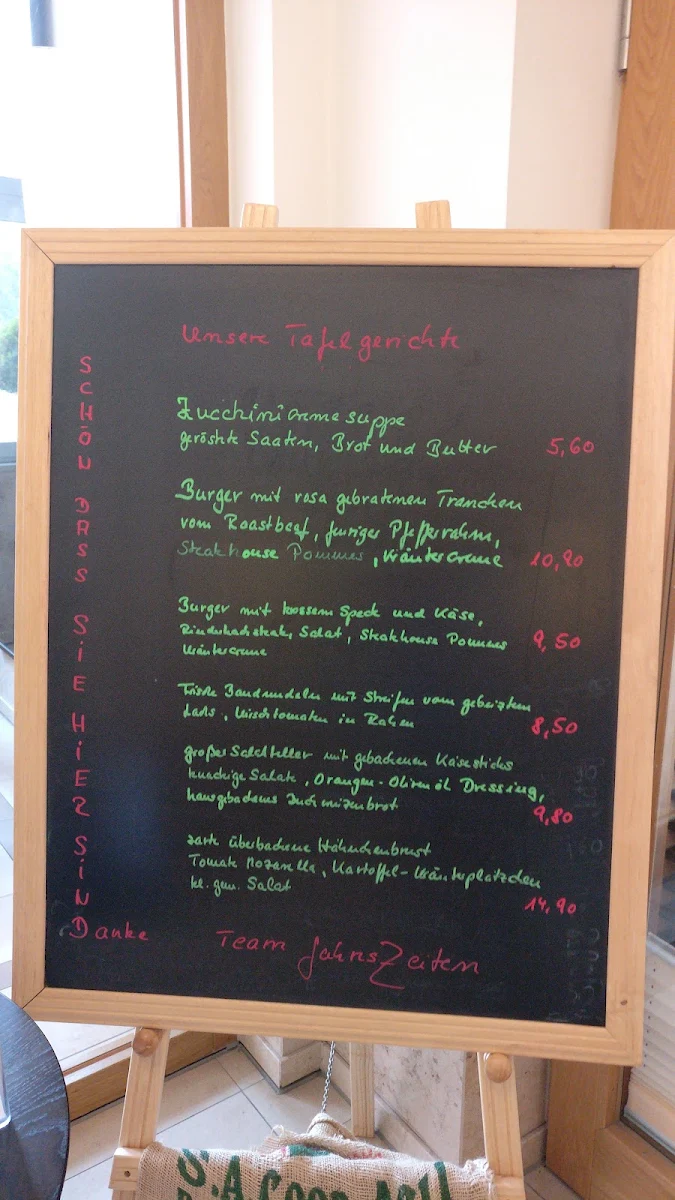 Unsere Tafelgerichte
SCHÖN DASS SiE HiER SiND
Zucchinicremesuppe
geröstete Saaten, Brot und Butter 5,60
Burger mit rosa gebratenen Tranchen
vom Roastbeef, feuriger Pfefferrahm,
Steakhouse Pommes, Kräutercreme 10,90
Burger mit krossem Speck und Käse,
Rinderhacksteak, Salat, Steakhouse Pommes 9,50
Kräutercreme
Frische Bandnudeln mit Streifen vom gebeizten
Lachs, Kirschtomaten in Rahm 8,50
großer Salatteller mit gebackenen Käsesticks
knackige Salate, Orangen-Olivenöl Dressing,
hausgebackenes Buchweizenbrot 9,80
zarte überbackene Hähnchenbrust
Tomate Mozarella, Kartoffel-Kräuterplätzchen
kl. gem. Salat 14,90
Danke Team JahresZeiten
S.A